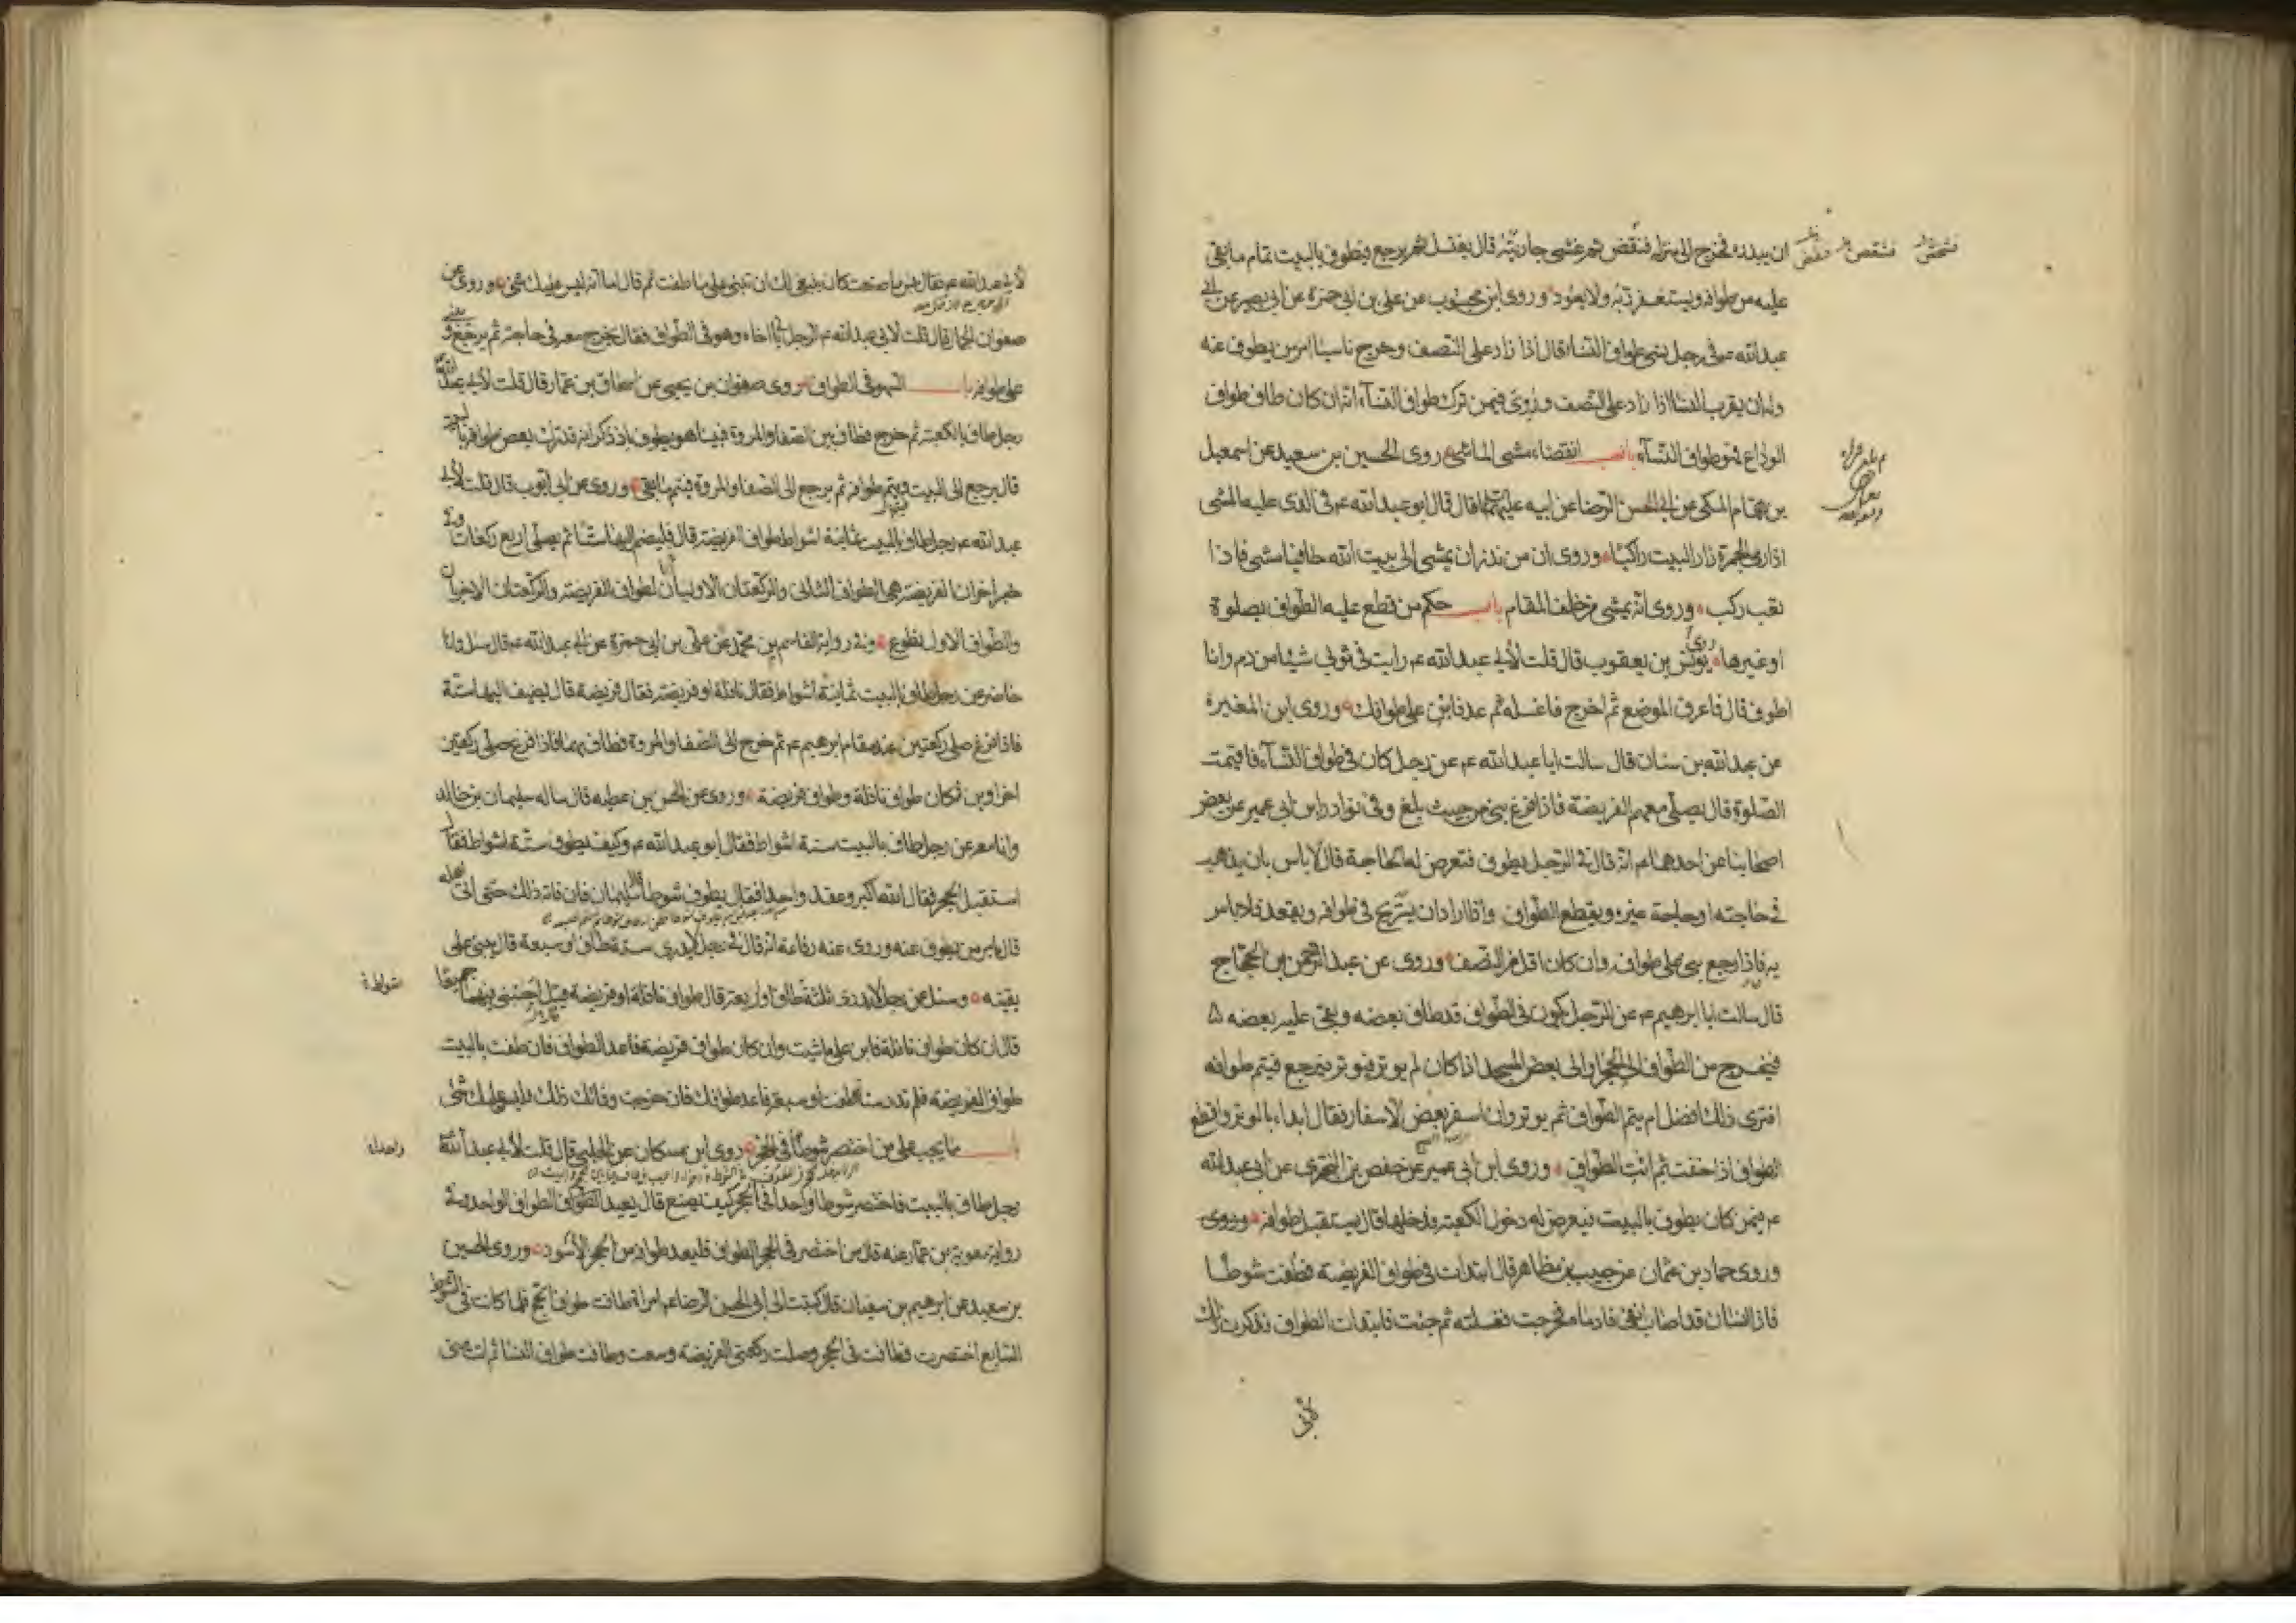 ان يبدره فخرج الى منزله فنقض ثم غشى جاريته قال يغتسل ثم يرجع فيطوف بالبيت تمام ما بقى
عليه من طوافه ويستغفر ربه ولا يعود وروى ابن محبوب عن على بن ابى حمزة عن ابى بصير عن ابى
عبد الله ع فى رجل نسى طواف النساء قال اذا زاد على النصف وخرج ناسيا امر من يطوف عنه
وله ان يقرب النساء اذا زاد على النصف وروى فيمن ترك طواف النساء انه ان كان طاف طواف
الوداع فهو طواف النساء باب انقضاء مشى الماشى روى الحسين بن سعيد عن اسمعيل
بن همام المكى عن ابى الحسن الرضا عن ابيه عليهما قال قال ابو عبد الله ع فى الذى عليه المشى
اذا رمى الجمرة زار البيت راكبا وروى ان من نذر ان يمشى الى بيت الله حافيا مشى فاذا
تعب ركب وروى انه يمشى من خلف المقام باب حكم من قطع عليه الطواف بصلوة
او غيرها روى يونس بن يعقوب قال قلت لأبى عبد الله ع رايت فى ثوبى شيئا من دم وانا
اطوف قال فاعرف الموضع ثم اخرج فاغسله ثم عد فابن على طوافك وروى ابن المغيرة
عن عبد الله بن سنان قال سالت ابا عبد الله ع عن رجل كان فى طواف النساء فاقيمت
الصلوة قال يصلى معهم الفريضة فاذا فرغ بنى من حيث بلغ وفى نوادر ابن ابى عمير عن بعض
اصحابنا عن احدهما ع انه قال فى الرجل يطوف فتعرض له الحاجة قال لا باس بان يذهب
فى حاجته او حاجة غيره ويقطع الطواف واذا اراد ان يستريح فى طوافه ويقعد فلا باس
به فاذا رجع بنى على طوافه وان كان اقل من النصف وروى عن عبد الرحمن بن الحجاج
قال سالت ابا ابرهيم ع عن الرجل يكون فى الطواف قد طاف بعضه وبقى عليه بعضه
فيخرج من الطواف الى الحجر او الى بعض المسجد اذا كان لم يوتر فيوتر فيرجع فيتم طوافه
افترى ذلك افضل ام يتم الطواف ثم يوتر وان اسفر بعض الاسفار فقال ابداء بالوتر واقطع
الطواف اذا خفت ثم ائت الطواف وروى ابن ابى عمير عن حفص بن البخترى عن ابى عبد الله
ع فيمن كان يطوف بالبيت فيعرض له دخول الكعبة فدخلها قال يستقبل طوافه وروى
وروى حماد بن عثمان عن حبيب بن مظاهر قال ابتدات فى طواف الفريضة فطفت شوطا
فاذا انسان قد اصاب انفى فادماه فخرجت فغسلته ثم جئت فابتدات الطواف فذكرت ذلك
لأبى
لأبى عبد الله ع فقال بئس ما صنعت كان ينبغى لك ان تبنى على ما طفت ثم قال اما انه ليس عليك شئ وروى عن
صفوان الجمال قال قلت لابى عبد الله ع الرجل ياتى اخاه وهو فى الطواف فقال يخرج معه فى حاجته ثم يرجع و يبنى
على طوافه باب السهو فى الطواف روى صفوان بن يحيى عن اسحاق بن عمار قال قلت لأبى عبد الله
رجل طاف بالكعبة ثم خرج فطاف بين الصفا والمروة فبينا هو يطوف اذ ذكر انه قد ترك بعض طوافه بالبيت
قال يرجع الى البيت ويتم طوافه ثم يرجع الى الصفا والمروة فيتم ما بقى وروى عن ابى ايوب قال قلت لأبى
عبد الله ع رجل طاف بالبيت ثمانية اشواط طواف الفريضة قال فليضم اليها ستا ثم يصلى اربع ركعات وفى
خبر اخر ان الفريضة هى الطواف الثانى والركعتان الاوليان لطواف الفريضة والركعتان الاخريان
والطواف الاول تطوع وفى رواية القاسم بن محمد عن على بن ابى حمزة عن ابى عبد الله ع قال سئل وانا
حاضر عن رجل طاف بالبيت ثمانية اشواط فقال نافلة او فريضة فقال فريضة قال يضيف اليها ستة
فاذا فرغ صلى ركعتين عند مقام ابرهيم ع ثم خرج الى الصفا والمروة فطاف بهما فاذا فرغ صلى ركعتين
اخراوين فكان طواف نافلة وطواف فريضة وروى عن الحسن بن عطيه قال ساله سليمان بن خالد
وانا معه عن رجل طاف بالبيت ستة اشواط فقال ابو عبد الله ع وكيف يطوف ستة اشواط فقال
استقبل الحجر فقال الله اكبر وعقد واحدا فقال يطوف شوطا قال سليمان فان فاته ذلك حتى اتى اهله
قال يامر من يطوف عنه وروى عنه رفاعة انه قال فى رجل لا يدرى ستة طاف او سبعة قال يبنى على
يقينه وسئل عن رجل لا يدرى ثلثة طاف او اربعة قال طواف نافلة او فريضة قيل اجبنى فيهما جميعا
قال ان كان طواف نافلة فابن على ما شئت وان كان طواف فريضة فاعد الطواف فان طفت بالبيت
طواف الفريضة فلم تدر ستة طفت او سبعة فاعد طوافك فان خرجت وفاتك ذلك فليس عليك شئ
باب ما يجب على من اختصر شوطا فى الحجر روى ابن مسكان عن الحلبى قال قلت لأبى عبد الله
رجل طاف بالبيت فاختصر شوطا واحدا فى الحجر كيف يصنع قال يعيد الطواف الطواف الواحد وفى
رواية معوية بن عمار عنه قال من اختصر فى الحجر الطواف فليعد طوافه من الحجر الأسود وروى الحسين
بن سعيد عن ابرهيم بن سفيان قال كتبت الى ابى الحسن الرضا ع امراة طافت طواف الحج فلما كانت فى الشوط
السابع اختصرت فطافت فى الحجر وصلت ركعتى الفريضة وسعت وطافت طواف النساء ثم اتت منى